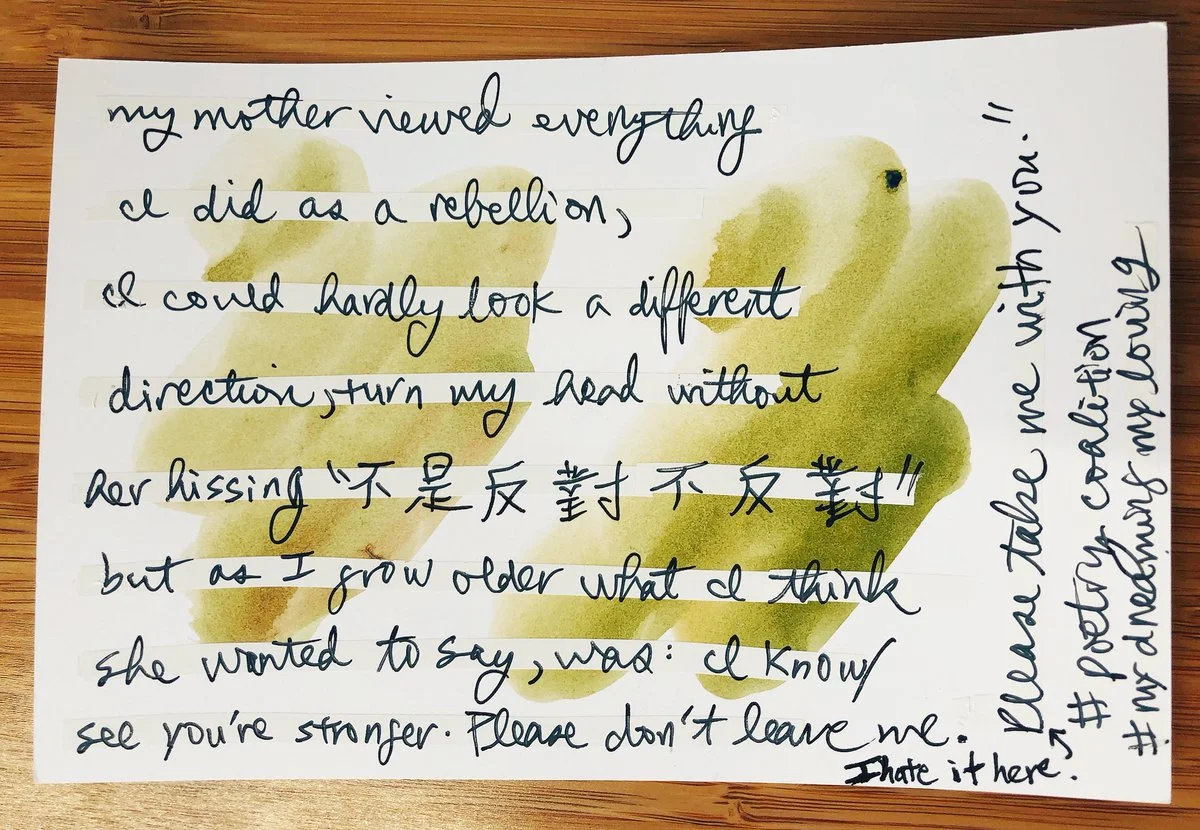 my mother viewed everything
I did as a rebellion,
I could hardly look a different
direction, turn my head without
her hissing "不是反對不反對"
but as I grow older what I think
she wanted to say, was: I know/
see you're stronger. Please don't leave me.
I hate it here.
Please take me with you."
# poetry coalition
# my dreaming my loving